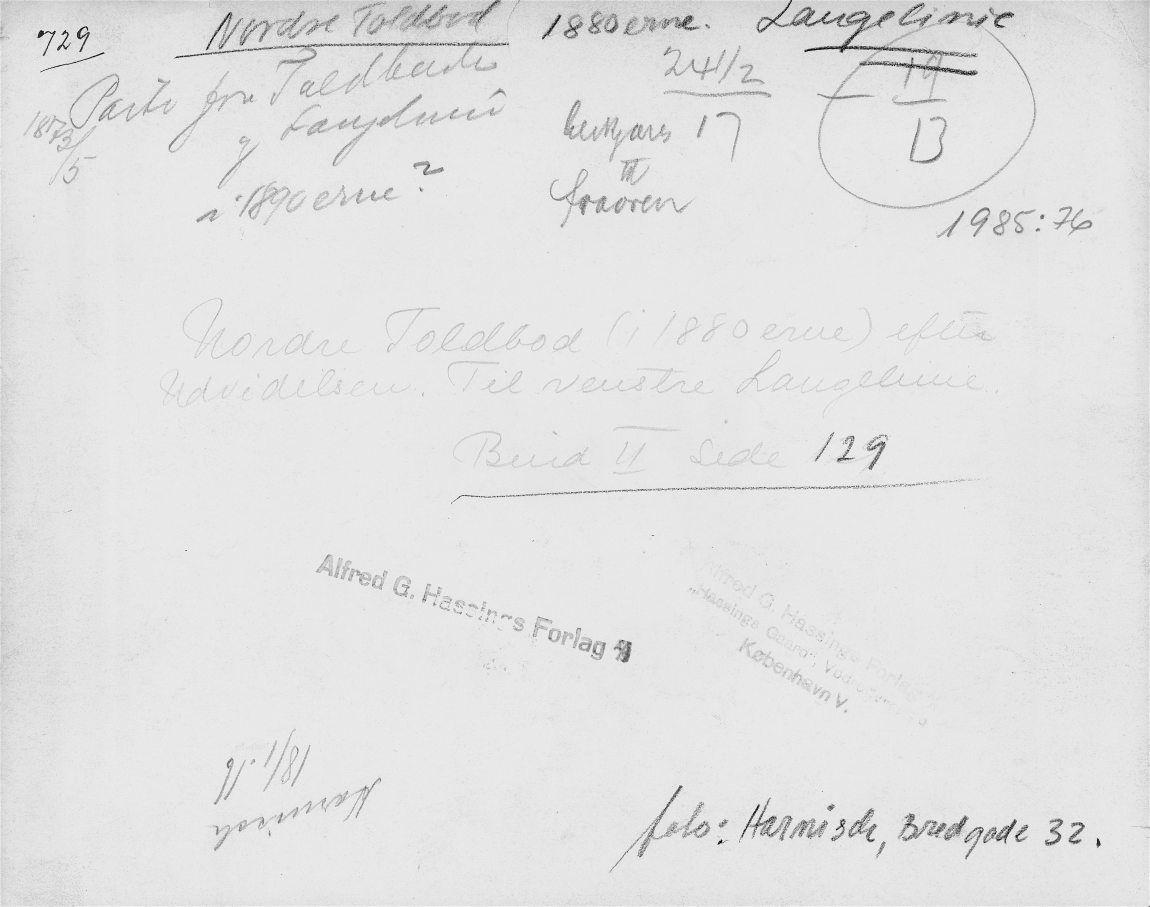 729
Nordre Toldbod 1880erne. Langelinie
Parti fra Toldboden
og Langelinie
i 1890erne?
24 1/2
17
III
19
13
1985:76
Nordre Toldbod (i 1880erne) efter
Udvidelsen. Til venstre Langelinie.
Bind II Side 129
Alfred G. Hassings Forlag
Alfred G. Hassings Forlag
"Hassings Gaard",
København V.
18/1.16
Harnisch
foto: Harnisch, Bredgade 32.